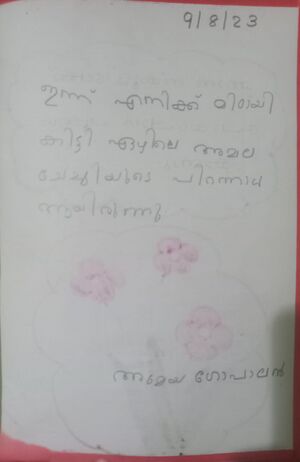 9/8/23
ഇന്ന് എനിക്ക് മിഠായി
കിട്ടി ഏഴിലെ അമല
ചേച്ചിയുടെ പിറന്നാള
ന്നയിരുന്നു
അമേയ ഗോപാലൻ